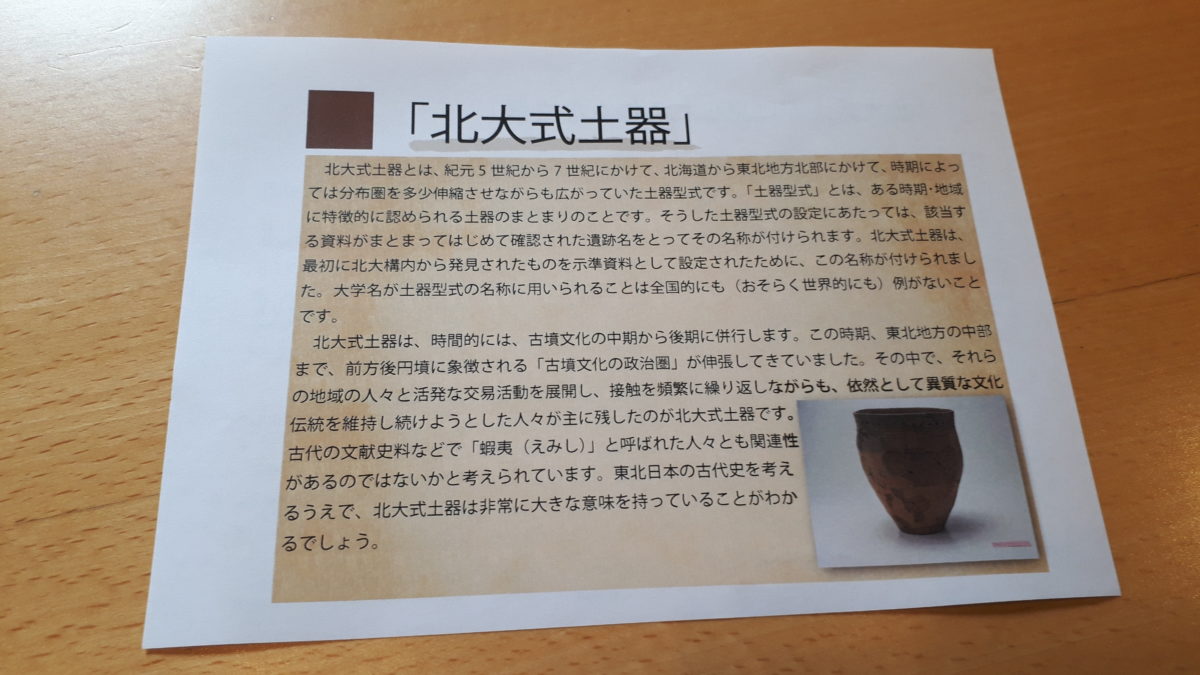 「北大式土器」
北大式土器とは、紀元5世紀から7世紀にかけて、北海道から東北地方北部にかけて、時期によっ
ては分布圏を多少伸縮させながらも広がっていた土器型式です。「土器型式」とは、ある時期・地域
に特徴的に認められる土器のまとまりのことです。そうした土器型式の設定にあたっては、該当す
る資料がまとまってはじめて確認された遺跡名をとってその名称が付けられます。北大式土器は、
最初に北大構内から発見されたものを示準資料として設定されたために、この名称が付けられまし
た。大学名が土器型式の名称に用いられることは全国的にも（おそらく世界的にも）例がないこと
です。
北大式土器は、時間的には、古墳文化の中期から後期に併行します。この時期、東北地方の中部
まで、前方後円墳に象徴される「古墳文化の政治圏」が伸張してきていました。その中で、それら
の地域の人々と活発な交易活動を展開し、接触を頻繁に繰り返しながらも、依然として異質な文化
伝統を維持し続けようとした人々が主に残したのが北大式土器です。
古代の文献史料などで「蝦夷（えみし）」と呼ばれた人々とも関連性
があるのではないかと考えられています。東北日本の古代史を考え
るうえで、北大式土器は非常に大きな意味を持っていることがわか
るでしょう。